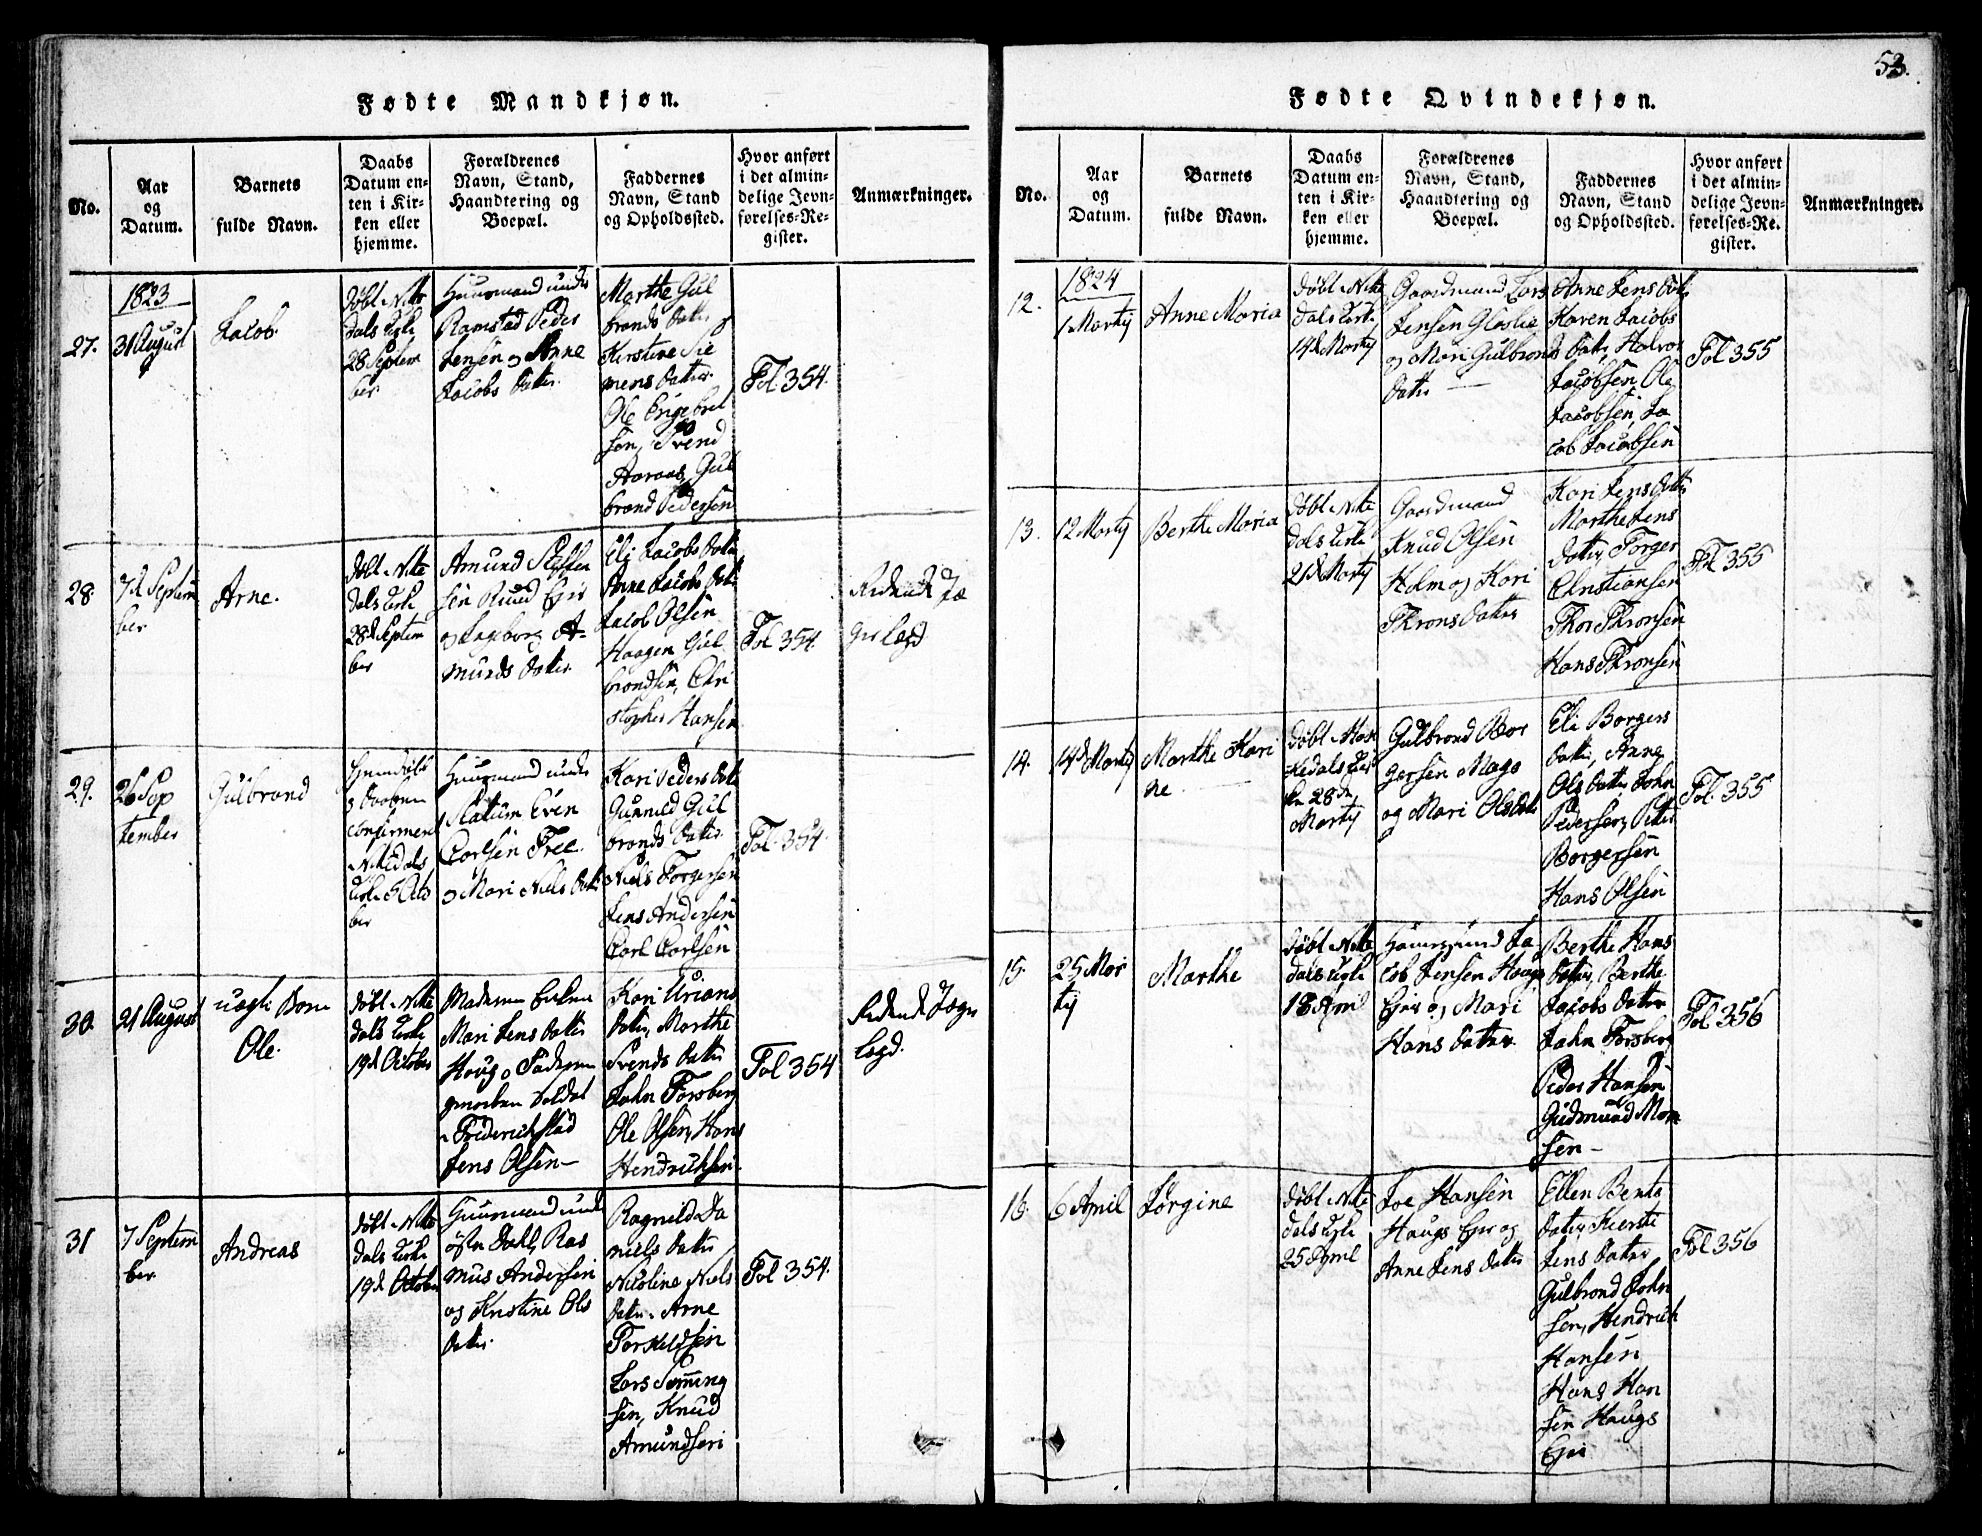 53.
Fødte Mandkjøn.
No.
Aar
og
Datum.
Barnets
fulde Navn.
Daabs
Datum en-
ten i Kir-
ken eller
hjemme.
Forældrenes
Navn, Stand,
Haandtering og
Boepæl.
Faddernes
Navn, Stand
og Opholdssted.
Hvor anført
i det almin-
delige Jevn-
førelses-Re-
gister.
Anmærkninger.
27.
1823
31 August
Jacob
døbt i Nitte
dals Kirke
28 Septem
ber
Huusmand under
Ramstad Peder
Jensen og Anne
Jacobs datter
Marthe Gul
brands datter
Kirstine Sie
mens datter
Ole Engebret
sen, Svend
Aaraas, Gul
brand Pedersen
Fol. 354.
28
7de Septem
ber
Arne.
døbt i Nitte
dals Kirke
28de Septem
ber
Amund Steffen
sen Ruud Eier
og Ingborg A-
munds datter
Eli Jacobs datter
Anne Jacobs dat
Jacob Olsen
Haagen Gul
brandsen, Chri
stopher Hansen
Fol 354.
29.
26 Sep
tember
Gulbrand
Huusmand under
Slatum Even
Carlsen Free
og Mari Niels dat
Kari Peders dat
Gunnild Gul
brands datter
Niels Torgersen
Jens Andersen
Carl Carlsen
Fol. 354.
30.
21 August
uægte Barn
Ole.
døbt i Nitte
dals Kirke
19de October
Mari Jens datter
Haug
Soldat
i Friderichstad
Jens Olsen
Kari Urians
datter, Marthe
Svends datter
John Forsberg
Ole Olsen, Hans
Hendrichsen
Fol 354
31
7 Septem
ber
Andreas
døbt i Nitte
dals Kirke
19de October
Huusmand under
Ras
mus Andersen
og Kristine Ols
datter
Ragnild Da
niels datter
Nicoline Niels
datter. Arne
Torkildsen
Lars Semming
sen, Knud
Amundsen
Fol 354.
Fødte Qvindekjøn.
No.
Aar
og
Datum.
Barnets
fulde Navn.
Daabs
Datum en-
ten i Kir-
ken eller
hjemme.
Forældrenes
Navn, Stand,
Haandtering og
Boepæl.
Faddernes
Navn, Stand
og Opholdssted.
Hvor anført
i det almin-
delige Jevn-
førelses-Re-
gister.
Anmærkninger.
12.
1824
1 Martij
Anne Maria
døbt i Nitte
dals Kirke
14de Martij
Gaardmand Lars
Jensen Glaslie
og Mari Gulbrands
datter
Anne Jens datter
Karen Jacobs
datter, Halvor
Jacobsen, Ole
Jacobsen, Ja
cob Jacobsen
Fol 355
13.
12 Martij
Berthe Maria
døbt i Nitte
dals Kirke
21de Martij
Gaardmand
Knud Olsen
Holm og Kari
Throns datter
Kari Jens datter
Marthe Jens
datter, Torger
Christiansen
Thor Thronsen
Hans Thronsen
Fol 355
14.
14de Martij
Marthe Kari
ne
døbt i Hak
kedals Kir
ke 28de
Martij
Gulbrand Bor
gersen Mago
og Mari Olsdatter
Eli Borgers
datter, Anne
Ols datter, John
Pedersen, Peter
Borgersen
Hans Olsen
Fol. 355
15.
25 Mar
tij
Marthe
døbt i Nitte
dals Kirke
18 April
Huusmand Ja
cob Jensen Haugs
Eier og Mari
Hans datter
Berthe Hans
datter, Berthe
Jacobs datter
John Forsberg
Peder Hansen
Gudmund Mon
sen
Fol 356
16.
6 April
Jørgine
døbt i Nitte
dals Kirke
25 April
Joe Hansen
Haugs Eier og
Anne Jens datter
Ellen Bents
datter, Kierste
Jens datter
Gulbrand John
sen, Hendrich
Hansen
Hans Han
sen Haugs
Eier
Fol 356